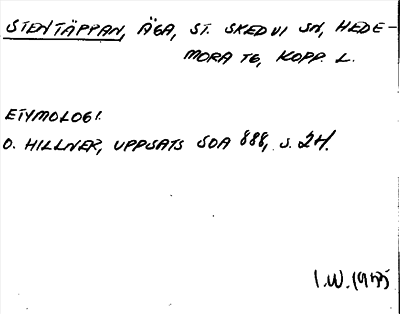 STENTÄPPAN, ÄGA, ST. SKEDVI SN, HEDE-
MORA TG, KOPP. L.
ETYMOLOGI.
O. HILLNER, UPPSATS SOA 888, S. 24.
I.W.